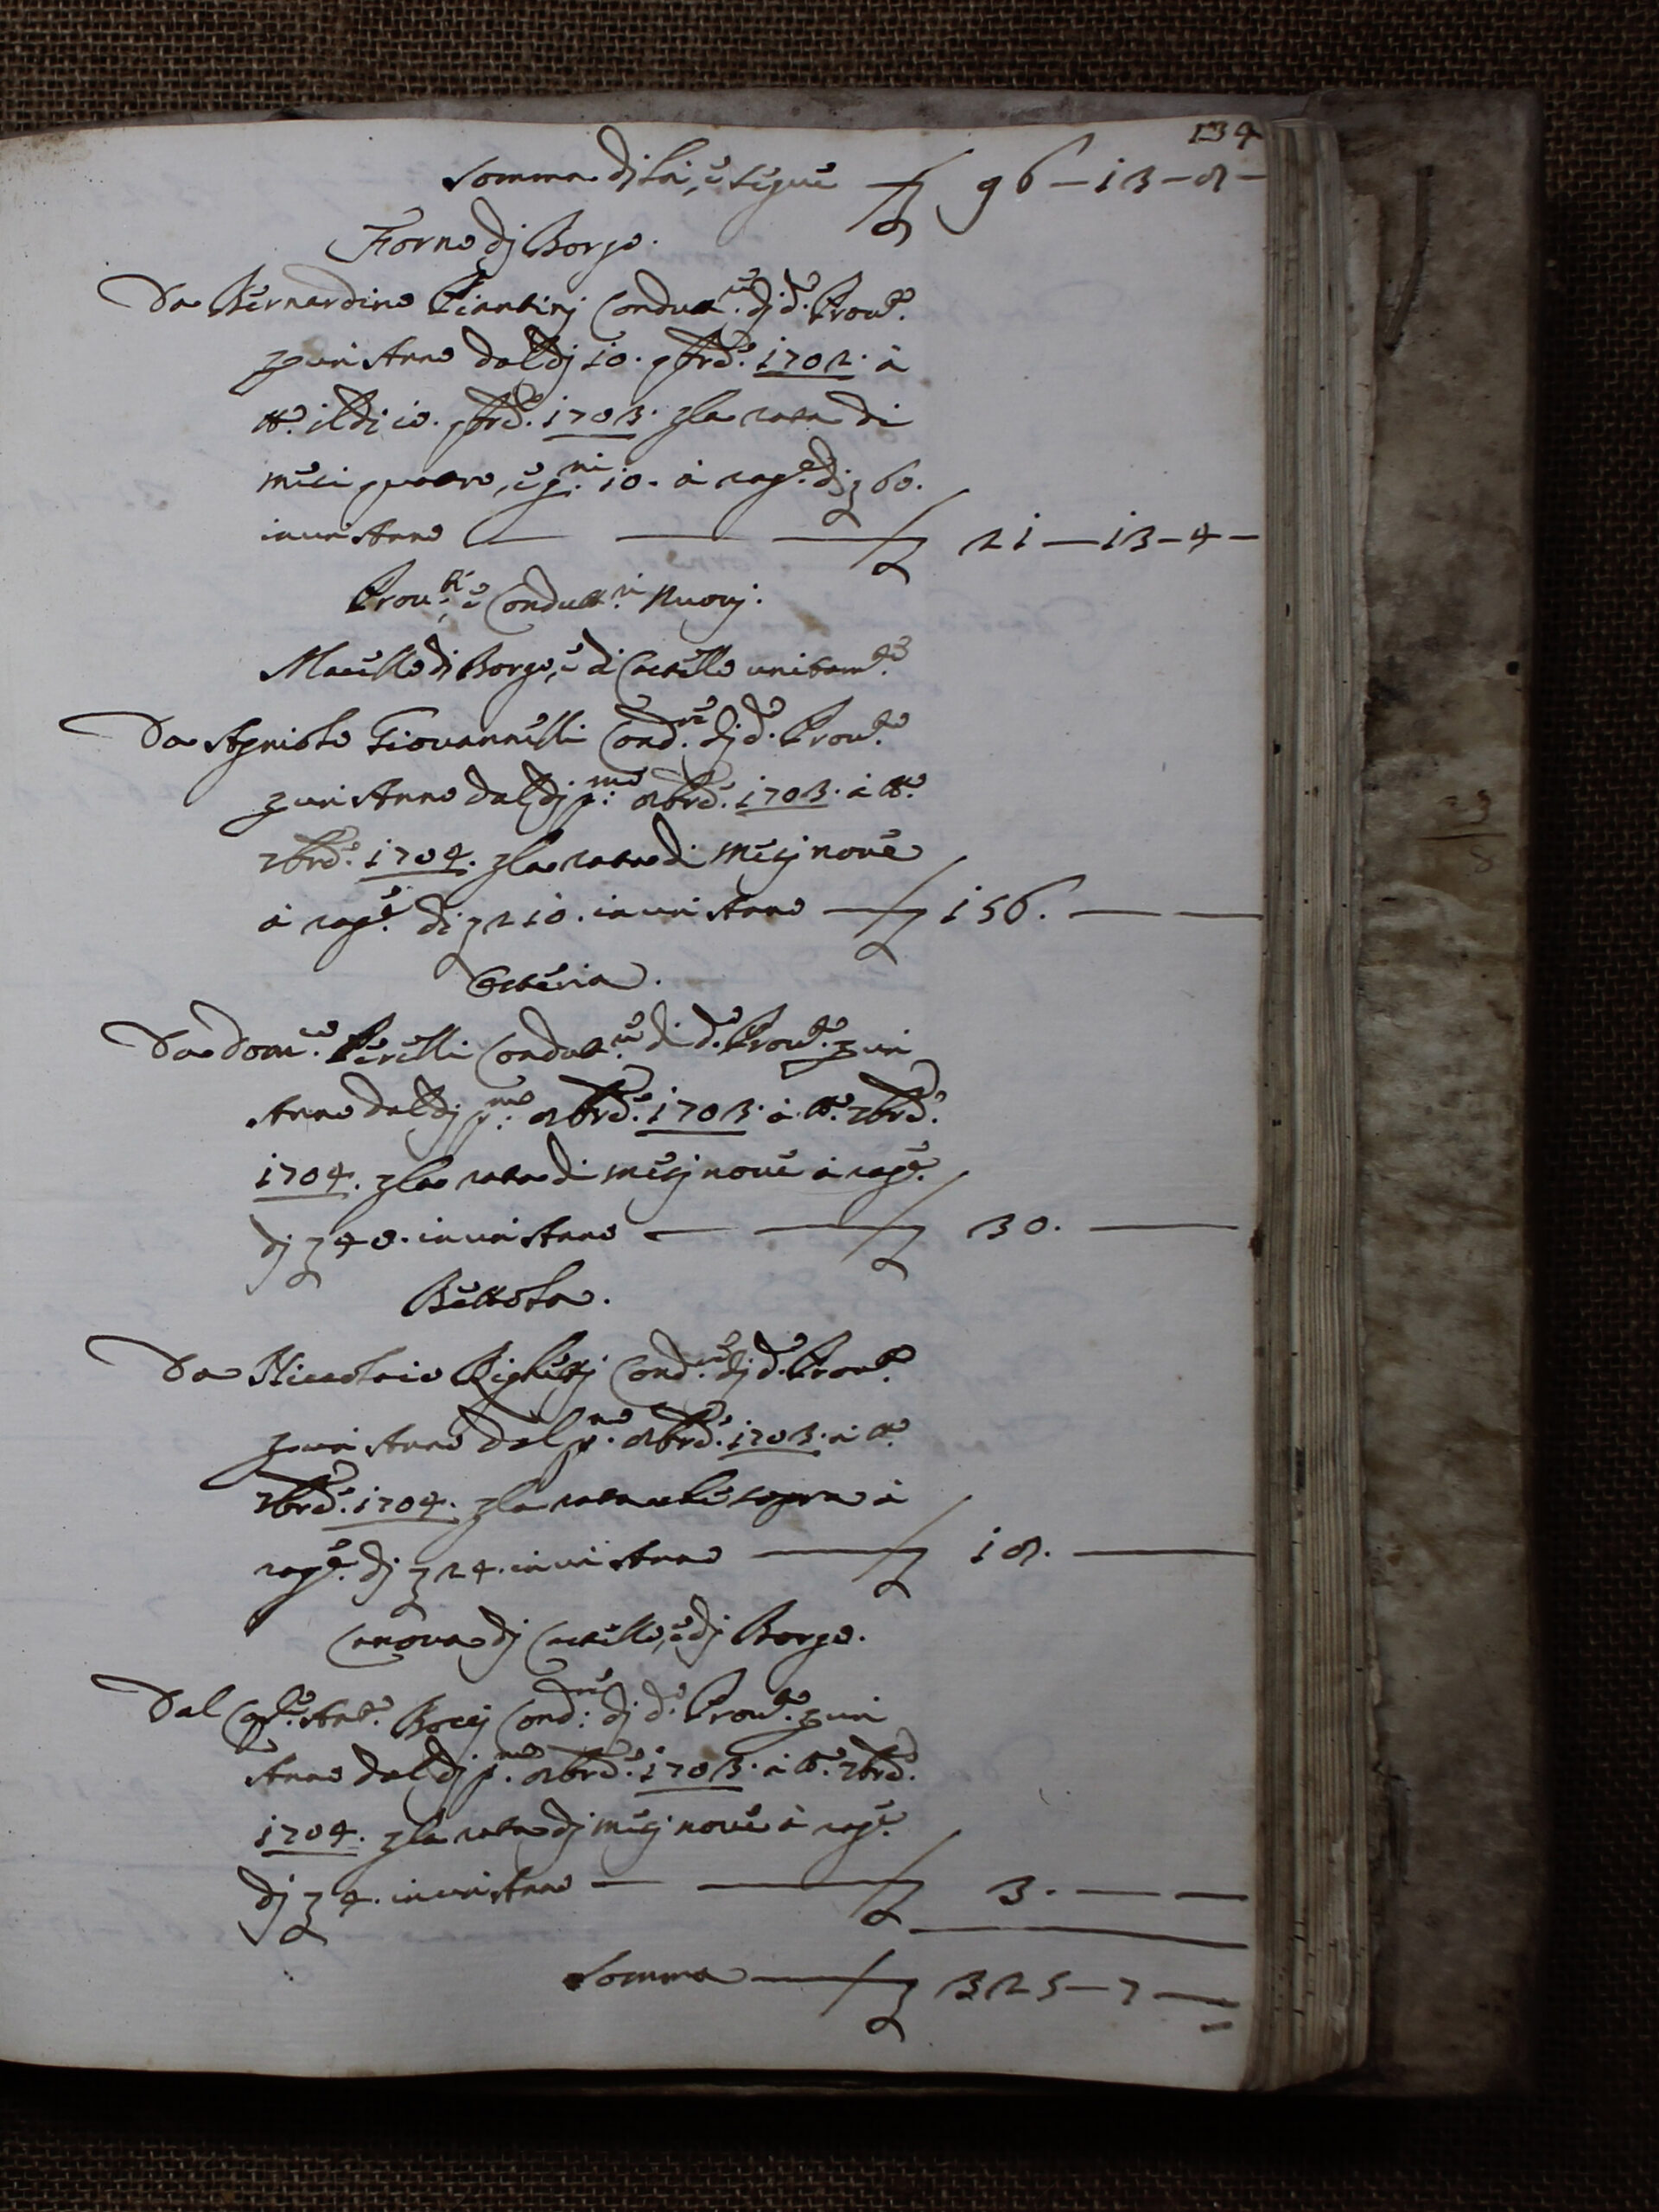 134
Somma di là, e segue — ƶ 96–13–8–
Forno dj Borgo.
Da Bernardino Piantinj Condutt.re dj d.o Prou.to
ƺ un Anno dal dj 10. 9bre. 1702. à
tt.o il di 10. 9bre. 1703. ƺ la rata di
mesi quatro, e g.ni 10. à rag.e dj ƶ 60.
in un Anno — — — ƶ 21–13–4–
Prou.ti e Condutt.ri Nuouj.
Macello di Borgo, e di Castello unitam.te
Da Agniolo Giouannelli Cond.re dj d.o Prou.to
ƺ un Anno dal dj p.mo 8bre. 1703. à tt.o
7bre. 1704. ƺ la rata di mesj noue
à rag.e di ƶ 210. in un Anno — ƶ 156. — —
Osteria.
Da Dom.co Perelli Condutt.re di d.o Prou.to ƺ un
Anno dal dj p.mo 8bre. 1703. à tt.o 7bre.
1704. ƺ la rata di mesj noue à rag.e
dj ƶ 40. in un Anno — — ƶ 30. —
Bettola.
Da Niccolaio Righettj Cond.re dj d.o Prou.to
ƺ un Anno dal p.mo 8bre. 1703. à tt.o
7bre. 1704. ƺ la rata che sopra à
rag.e dj ƶ 24. in un Anno — ƶ 18. —
Canoua dj Castello, e dj Borgo.
Dal Cap.o Ant.o Boccj Cond.re dj d.o Prou.to ƺ un
Anno dal dj p.mo 8bre. 1703. à tt.o 7bre.
1704. ƺ la rata dj mesj noue à rag.e
dj ƶ 4. in un Anno — — ƶ 3. — —
Somma — ƶ 325–7 —